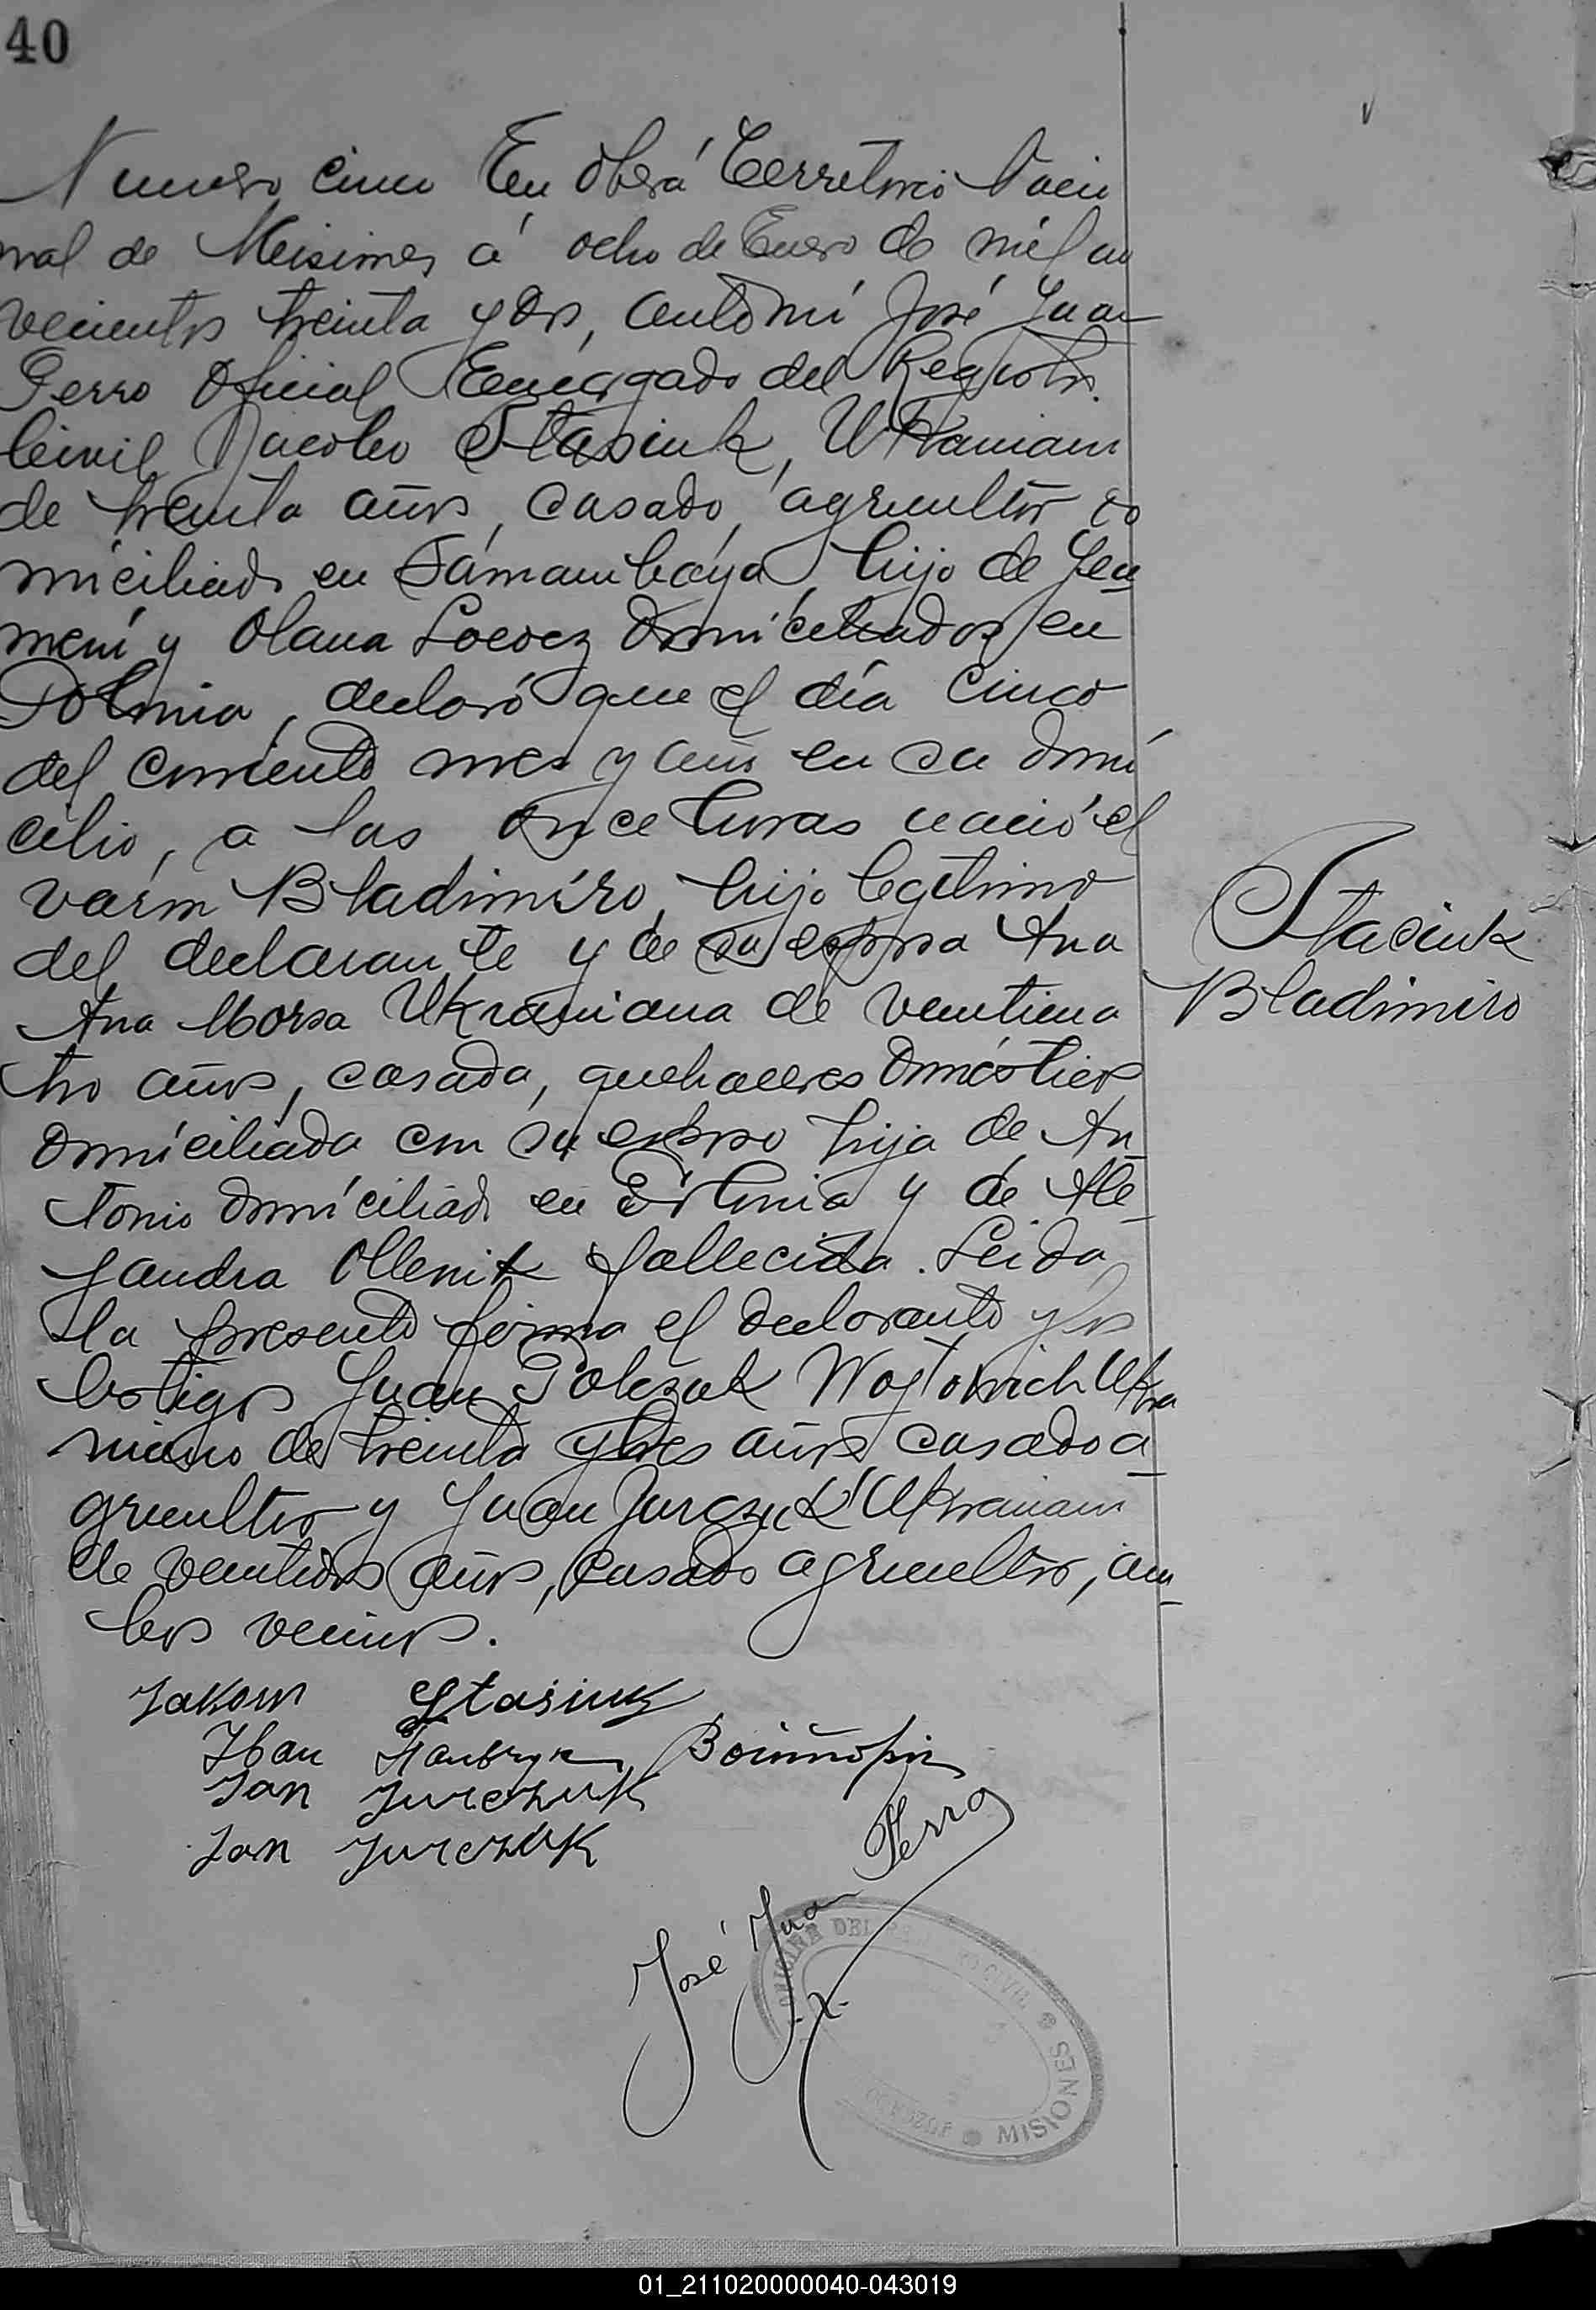 40
Numero cinco En Oberá Territorio Nacio
nal de Misiones á ocho de Enero de mil no
vecientos treinta y dos, ante mi José Juan
Ferro Oficial Encargado del Registro
Civil Jacobo Stasiuk, Ukraniano
de treinta años, casado, agricultor do
miciliado en Samambaya, hijo de
y Olana domiciliados en
Polonia, declaró que el día cinco
del corriente mes y año en su domi
cilio, a las once horas nació el
varon Bladimiro, hijo legitimo
del declarante y de su esposa Ana
Ana Morsa Ukraniana de veinticua
tro años, casada, quehaceres domésticos
domiciliada con su esposo hija de An
tonio domiciliado en Polonia y de Ale
jandra Ollenik fallecida. Leida
la presente firma el declarante y los
testigos Juan Wojtowich Ukra
niano de treinta y tres años casado a
gricultor y Juan Jurczuk Ukraniano
de veintidos años, casado agricultor, am
bos vecinos.
Stasiuk
Bladimiro
Jakow Stasiuk
Iban
Jan Jurczuk
Jan Jurczuk
José Juan Ferro
OFICINA DEL REGISTRO CIVIL
MISIONES
JUZGADO
01_211020000040-043019